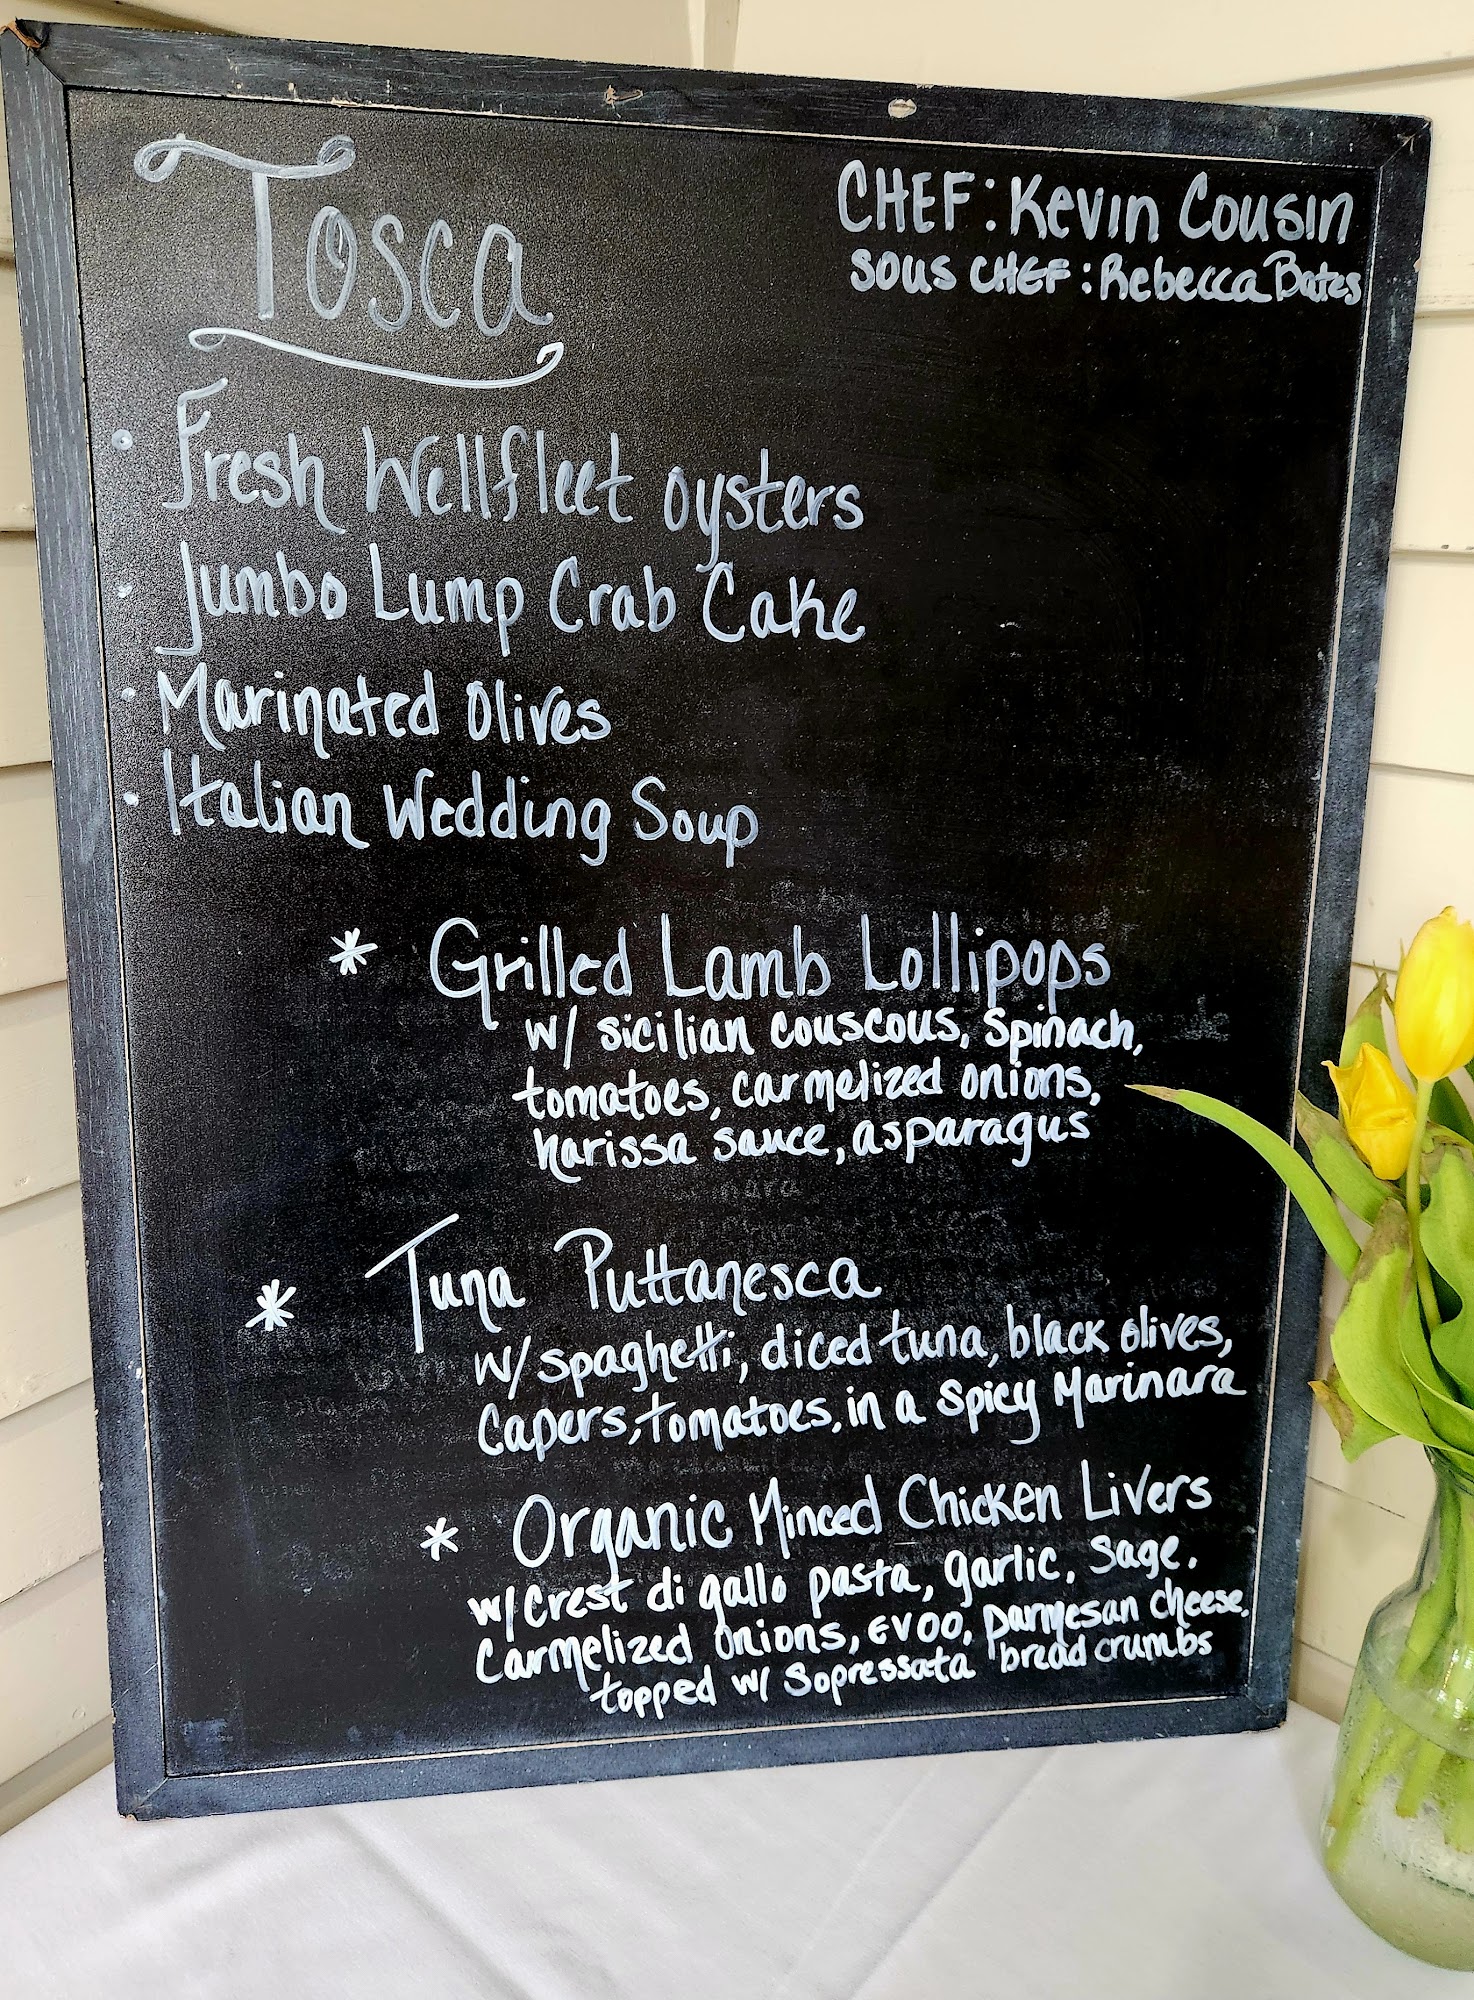 Tosca
CHEF: Kevin Cousin
SOUS CHEF: Rebecca Bates
• Fresh Wellfleet oysters
• Jumbo Lump Crab Cake
• Marinated Olives
• Italian Wedding Soup
* Grilled Lamb Lollipops
w/ sicilian couscous, spinach,
tomatoes, carmelized onions,
harissa sauce, asparagus
* Tuna Puttanesca
w/ spaghetti, diced tuna, black olives,
Capers, tomatoes, in a spicy Marinara
* Organic Minced Chicken Livers
w/ Crest di gallo pasta, garlic, sage,
Carmelized onions, EVOO, parmesan cheese,
topped w/ Sopressata bread crumbs